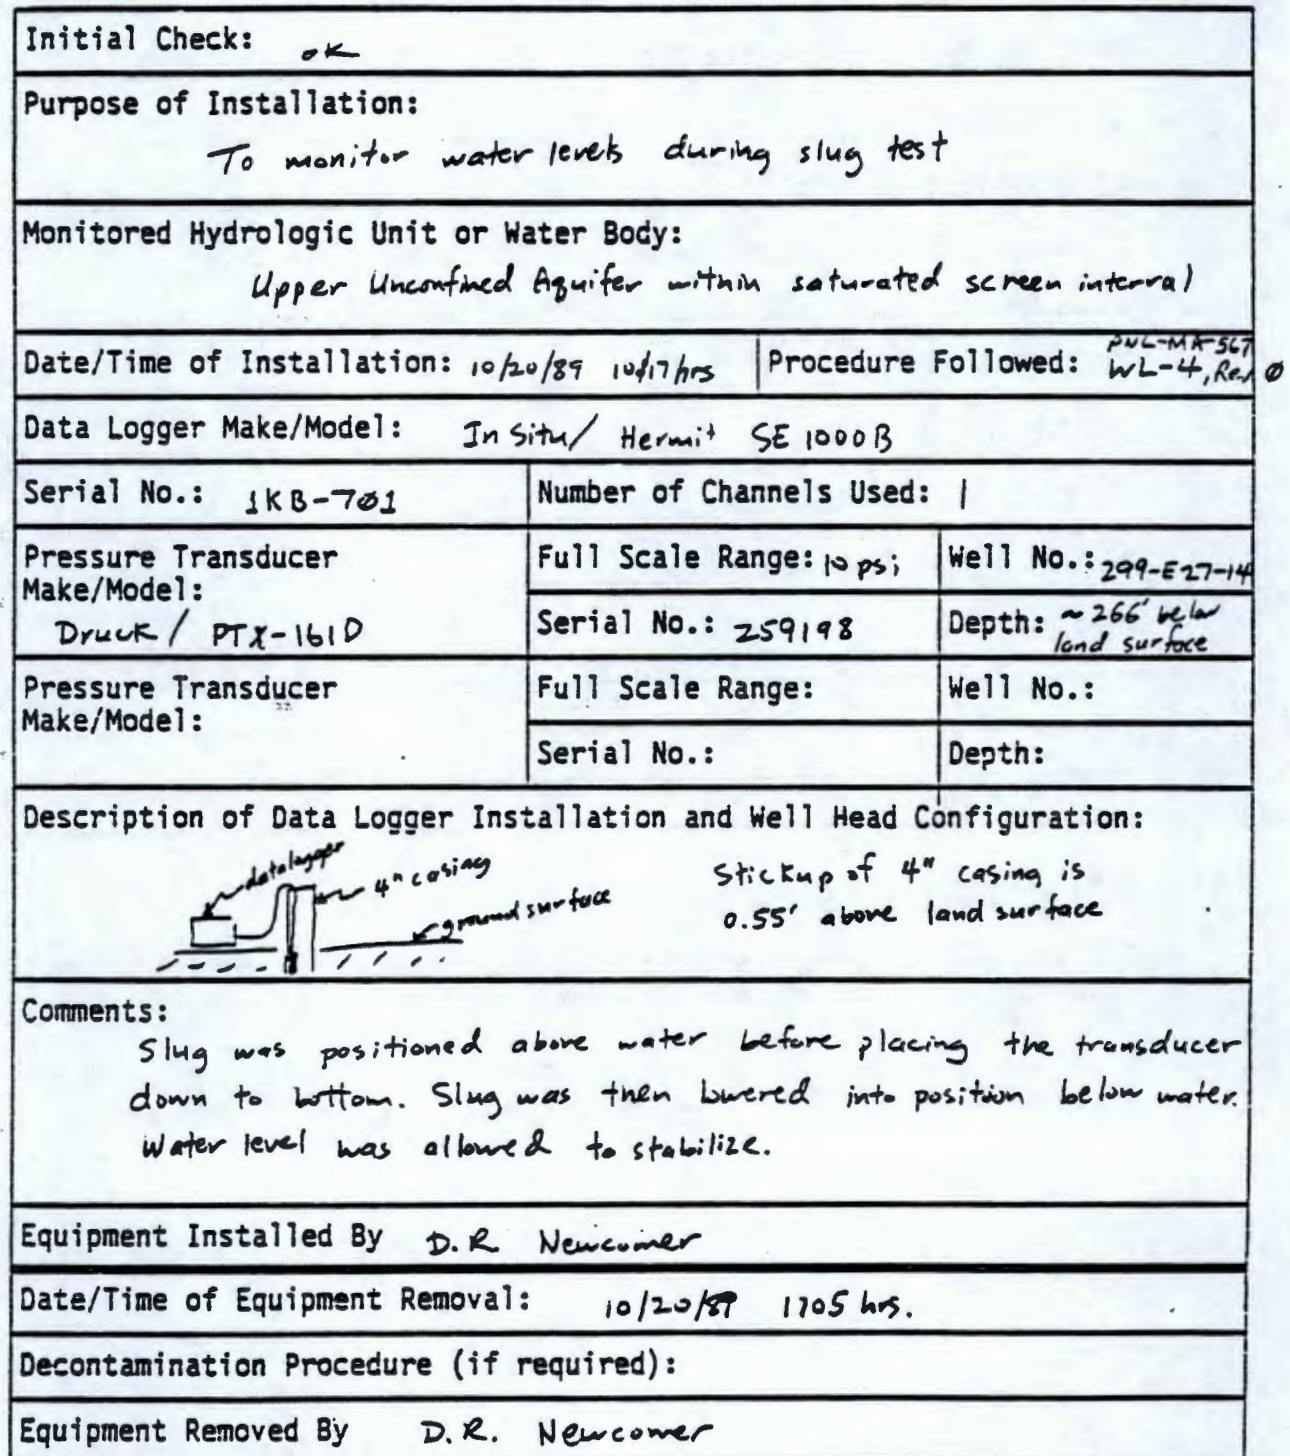 Initial Check: OK
Purpose of Installation:
To monitor water levels during slug test
Monitored Hydrologic Unit or Water Body:
Upper Unconfined Aquifer within saturated screen interval
Date/Time of Installation: 10/20/89 1017 hrs Procedure Followed: PNL-MA-567
WL-4, Rev Ø
Data Logger Make/Model: In Situ/ Hermit SE 1000B
Serial No.: 1KB-701 Number of Channels Used: 1
Pressure Transducer
Make/Model:
Druck / PTX-161D
Full Scale Range: 10 psi Well No.: 299-E27-14
Serial No.: 259198 Depth: ~ 266' below
land surface
Pressure Transducer
Make/Model:
Full Scale Range: Well No.:
Serial No.: Depth:
Description of Data Logger Installation and Well Head Configuration:
datalogger
4" casing
ground surface
Stickup of 4" casing is
0.55' above land surface
Comments:
Slug was positioned above water before placing the transducer
down to bottom. Slug was then lowered into position below water.
Water level was allowed to stabilize.
Equipment Installed By D.R. Newcomer
Date/Time of Equipment Removal: 10/20/89 1705 hrs.
Decontamination Procedure (if required):
Equipment Removed By D.R. Newcomer